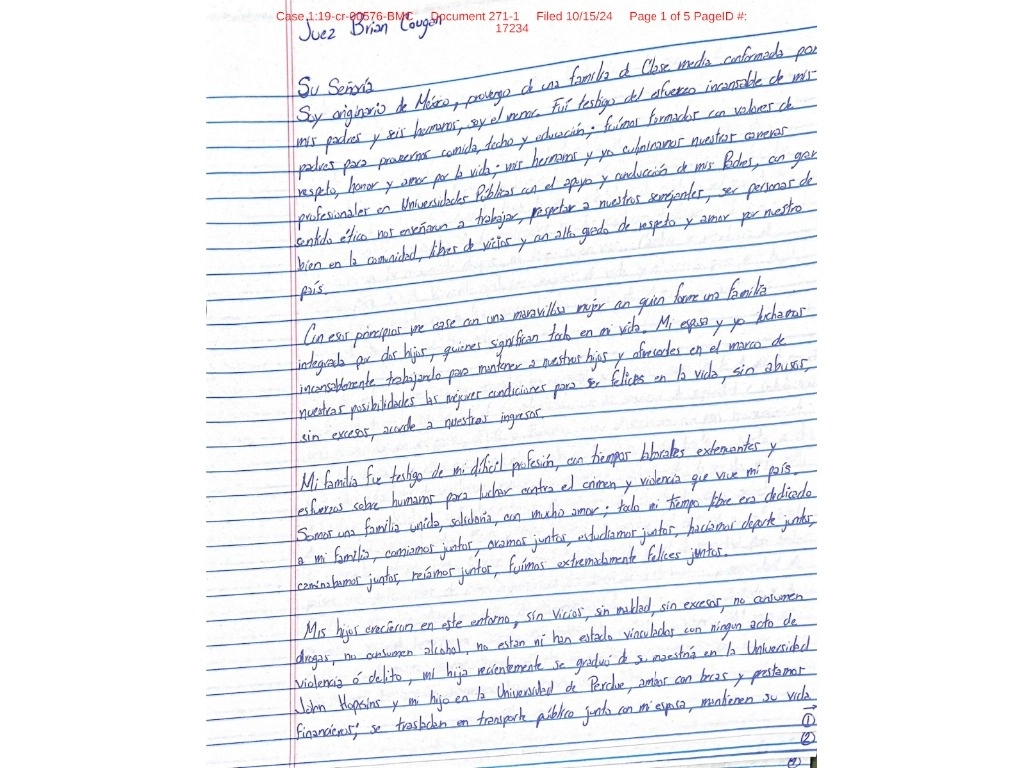 Case 1:19-cr-00576-BMC Document 271-1 Filed 10/15/24 Page 1 of 5 PageID #:
17234
Juez Brian Cougan
Su Señoría
Soy originario de México, provengo de una familia de Clase media conformada por
mis padres y seis hermanos, soy el menor. Fuí testigo del esfuerzo incansable de mis
padres para proveernos comida, techo y educación; fuímos formados con valores de
respeto, honor y amor por la vida; mis hermanos y yo culminamos nuestras carreras
profesionales en Universidades Públicas con el apoyo y conducción de mis Padres, con gran
sentido ético nos enseñaron a trabajar, respetar a nuestros semejantes, ser personas de
bien en la comunidad, libres de vicios y con alto grado de respeto y amor por nuestro
país.
Con esos principios me case con una maravillosa mujer con quien forme una familia
integrada por dos hijos, quienes significan todo en mi vida. Mi esposa y yo luchamos
incansablemente trabajando para mantener a nuestros hijos y ofrecerles en el marco de
nuestras posibilidades las mejores condiciones para ser felices en la vida, sin abusos,
sin excesos, acorde a nuestros ingresos.
Mi familia fue testigo de mi difícil profesión, con tiempos laborales extenuantes y
esfuerzos sobre humanos para luchar contra el crimen y violencia que vive mi país.
Somos una familia unida, solidaria, con mucho amor; todo mi tiempo libre era dedicado
a mi familia, comiamos juntos, oramos juntos, estudiamos juntos, haciamos deporte juntos,
caminabamos juntos, reíamos juntos, fuímos extremadamente felices juntos.
Mis hijos crecieron en este entorno, sin vicios, sin maldad, sin excesos, no consumen
drogas, no consumen alcohol, no estan ni han estado vinculados con ningun acto de
violencia ó delito, mi hija recientemente se graduó de su maestría en la Universidad
John Hopskins y mi hijo en la Universidad de Perdue, ambos con becas y prestamos
financieros; se trasladan en transporte público junto con mi esposa, mantienen su vida
→
①
②